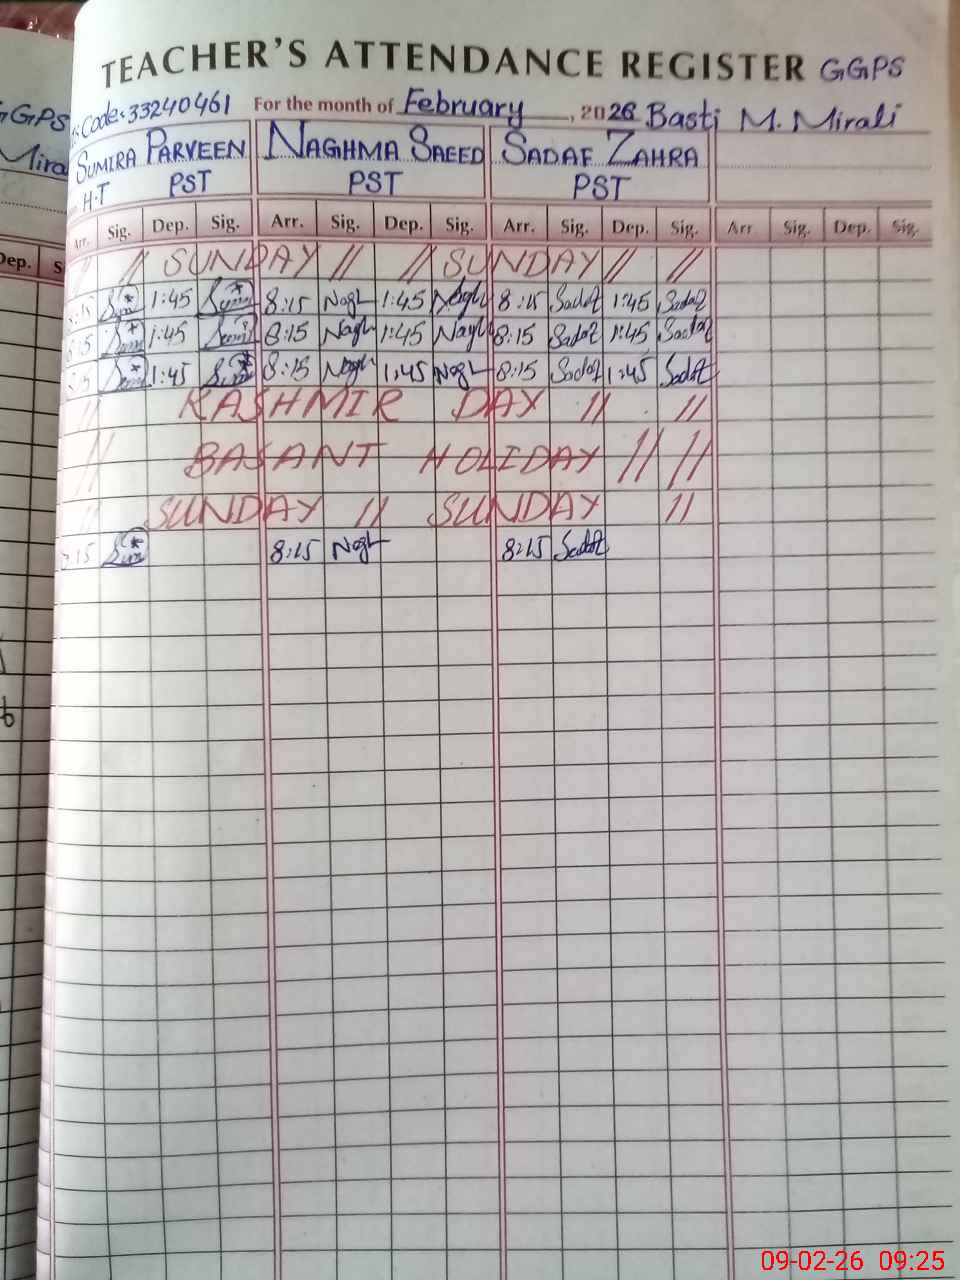 TEACHER'S ATTENDANCE REGISTER GGPS
Code: 33240461 For the month of February, 2026 Basti M. Mirali
GGPS
Mira
SUMIRA PARVEEN NAGHMA SAEED SADAF ZAHRA
H.T PST PST PST
Arr. Sig. Dep. Sig. Arr. Sig. Dep. Sig. Arr. Sig. Dep. Sig. Arr Sig. Dep. Sig.
Dep. S
// // SUNDAY // // SUNDAY // //
8:15 1:45 8:15 Nagh 1:45 Nagh 8:15 Sadaf 1:45 Sadaf
8:15 1:45 8:15 Nagh 1:45 Nagh 8:15 Sadaf 1:45 Sadaf
8:15 1:45 8:15 Nagh 1:45 Nagh 8:15 Sadaf 1:45 Sadaf
// KASHMIR DAY // //
// BASANT HOLIDAY // //
// SUNDAY // SUNDAY //
8:15 8:15 Nagh 8:15 Sadaf
09-02-26 09:25